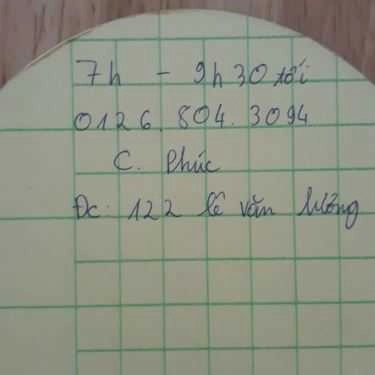 7h - 9h30 tối
0126.804.3094
C. Phúc
Đc: 122 lê văn lương